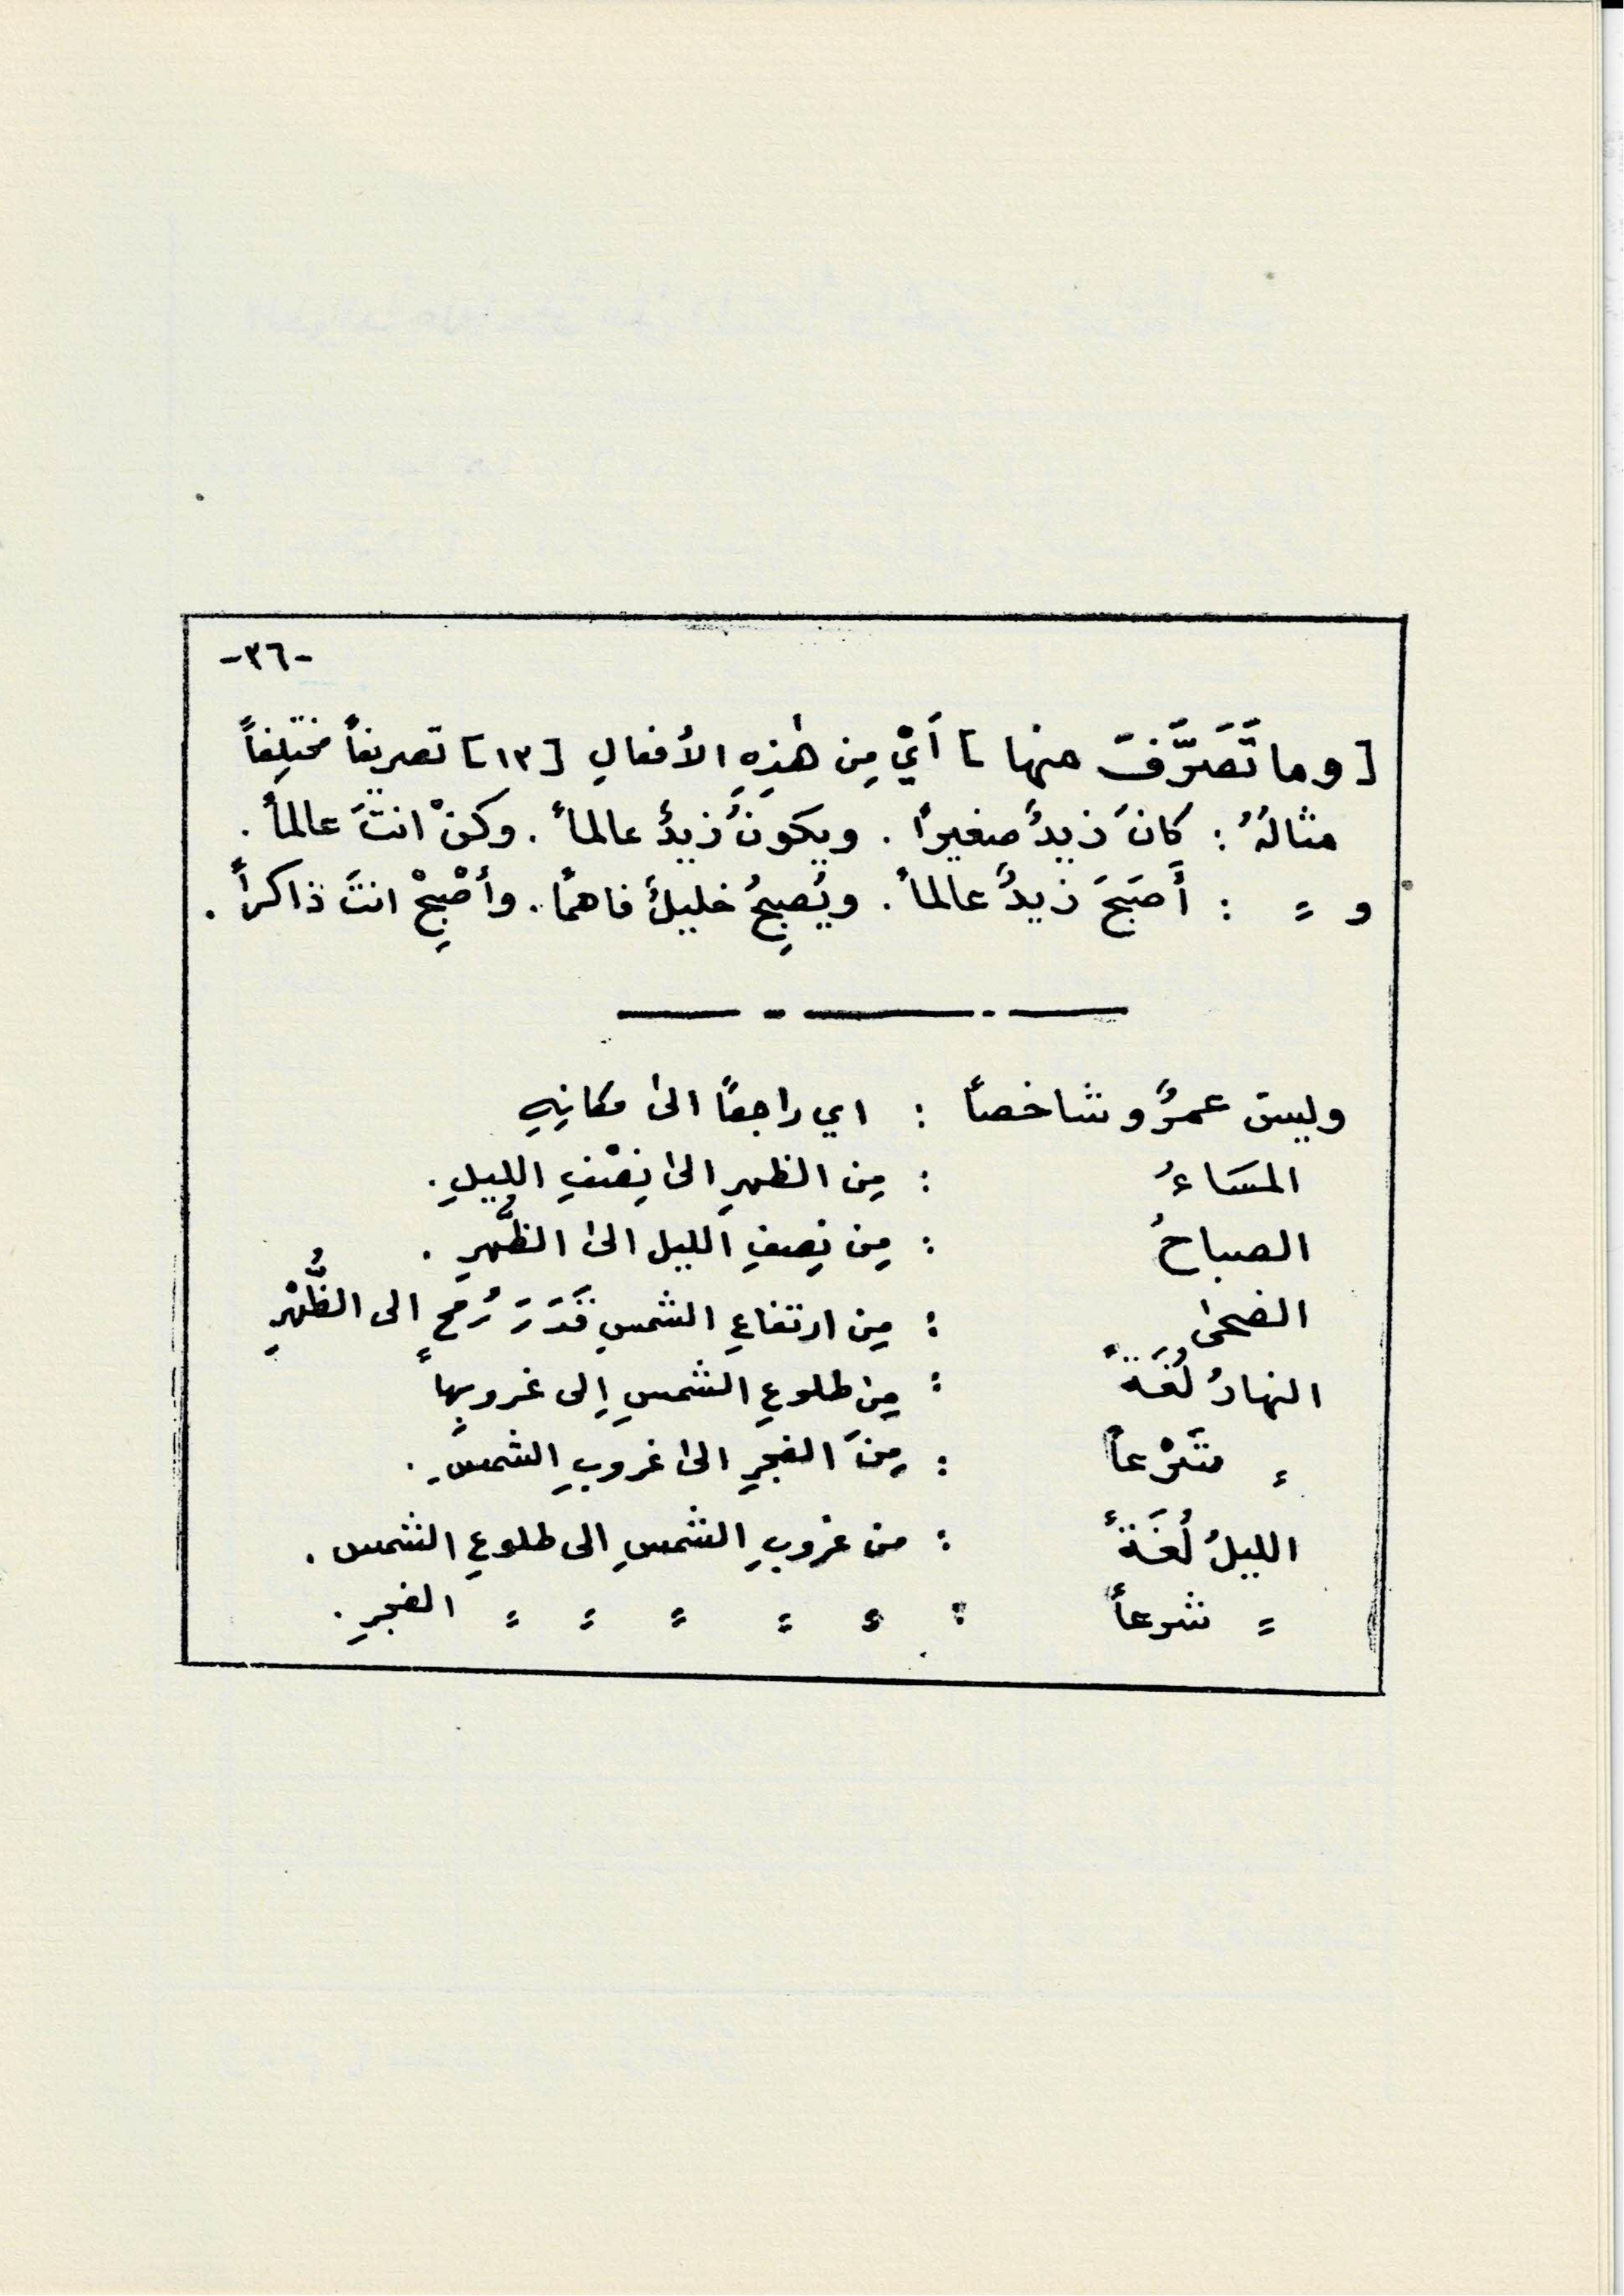 -٣٦-
[وما تَصَرَّفَ منها] أَيْ مِن هٰذِهِ الأفعالِ [١٣] تصريفاً مختلِفاً
مثالهُ : كانَ زيدٌ صغيراً . ويكونُ زيدٌ عالماً . وكنْ انتَ عالماً .
و = : أَصبَحَ زيدٌ عالماً . ويُصبِحُ خليلٌ فاهمًا . وأصْبِحْ انتَ ذاكراً .
وليس عمرٌو شاخصاً : اي راجعًا الىٰ مكانِهِ
المسَاءُ : مِن الظهرِ الىٰ نِصْفِ الليلِ .
الصباحُ : مِن نِصفِ الليل الىٰ الظُّهرِ .
الضحىٰ : مِن ارتفاعِ الشمسِ قَدَرَ رُمحٍ الى الظُّهْرِ
النهارُ لُغَةً : مِن طلوعِ الشمسِ إلى غروبِها
= شَرْعاً : مِنَ الفجرِ الىٰ غروبِ الشمسِ .
الليلُ لُغَةً : من غروبِ الشمسِ الى طلوعِ الشمس .
= شرعاً : = = = = = الفجرِ .